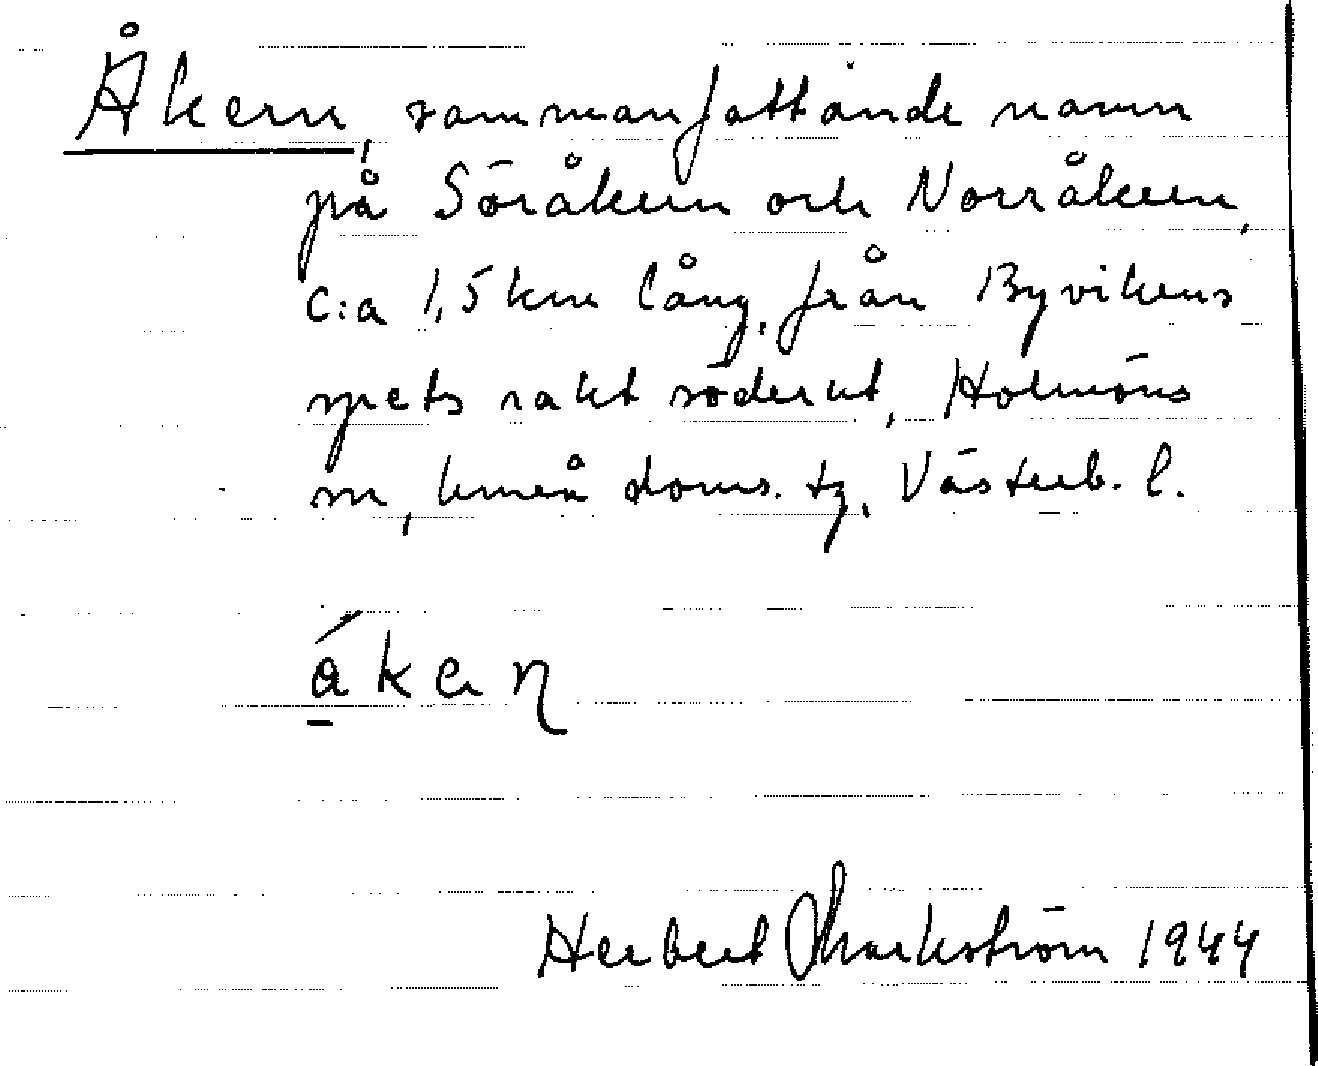 Åkern, sammanfattande namn
på Söråkern och Norråkern,
c:a 1,5 km lång, från Byvikens
spets rakt söderut, Holmöns
sn, Umeå doms. tg, Västerb. l.
ákaɳ
Herbert Markström 1944